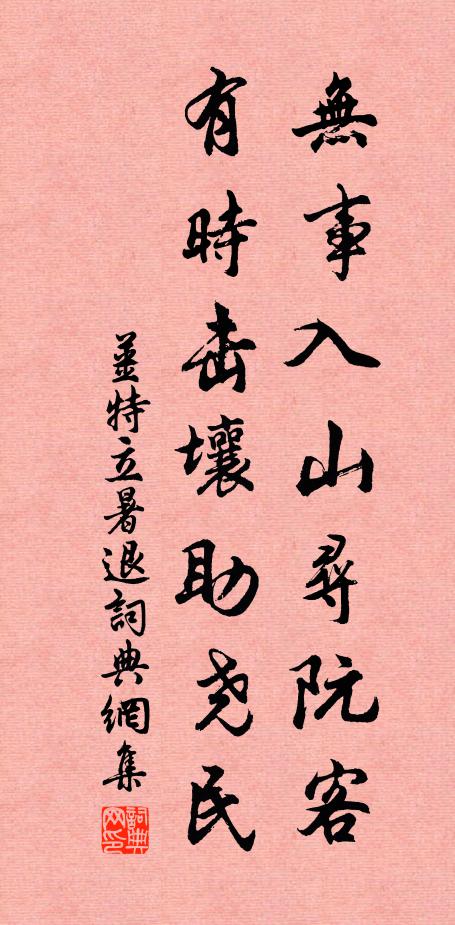 無事入山尋阮客
有時击壤助尧民
姜特立暑退詞典網集
詞典网印